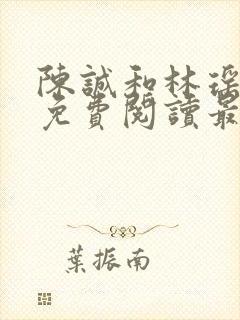 陳誠和林瑤
免費閱讀最
葉振南